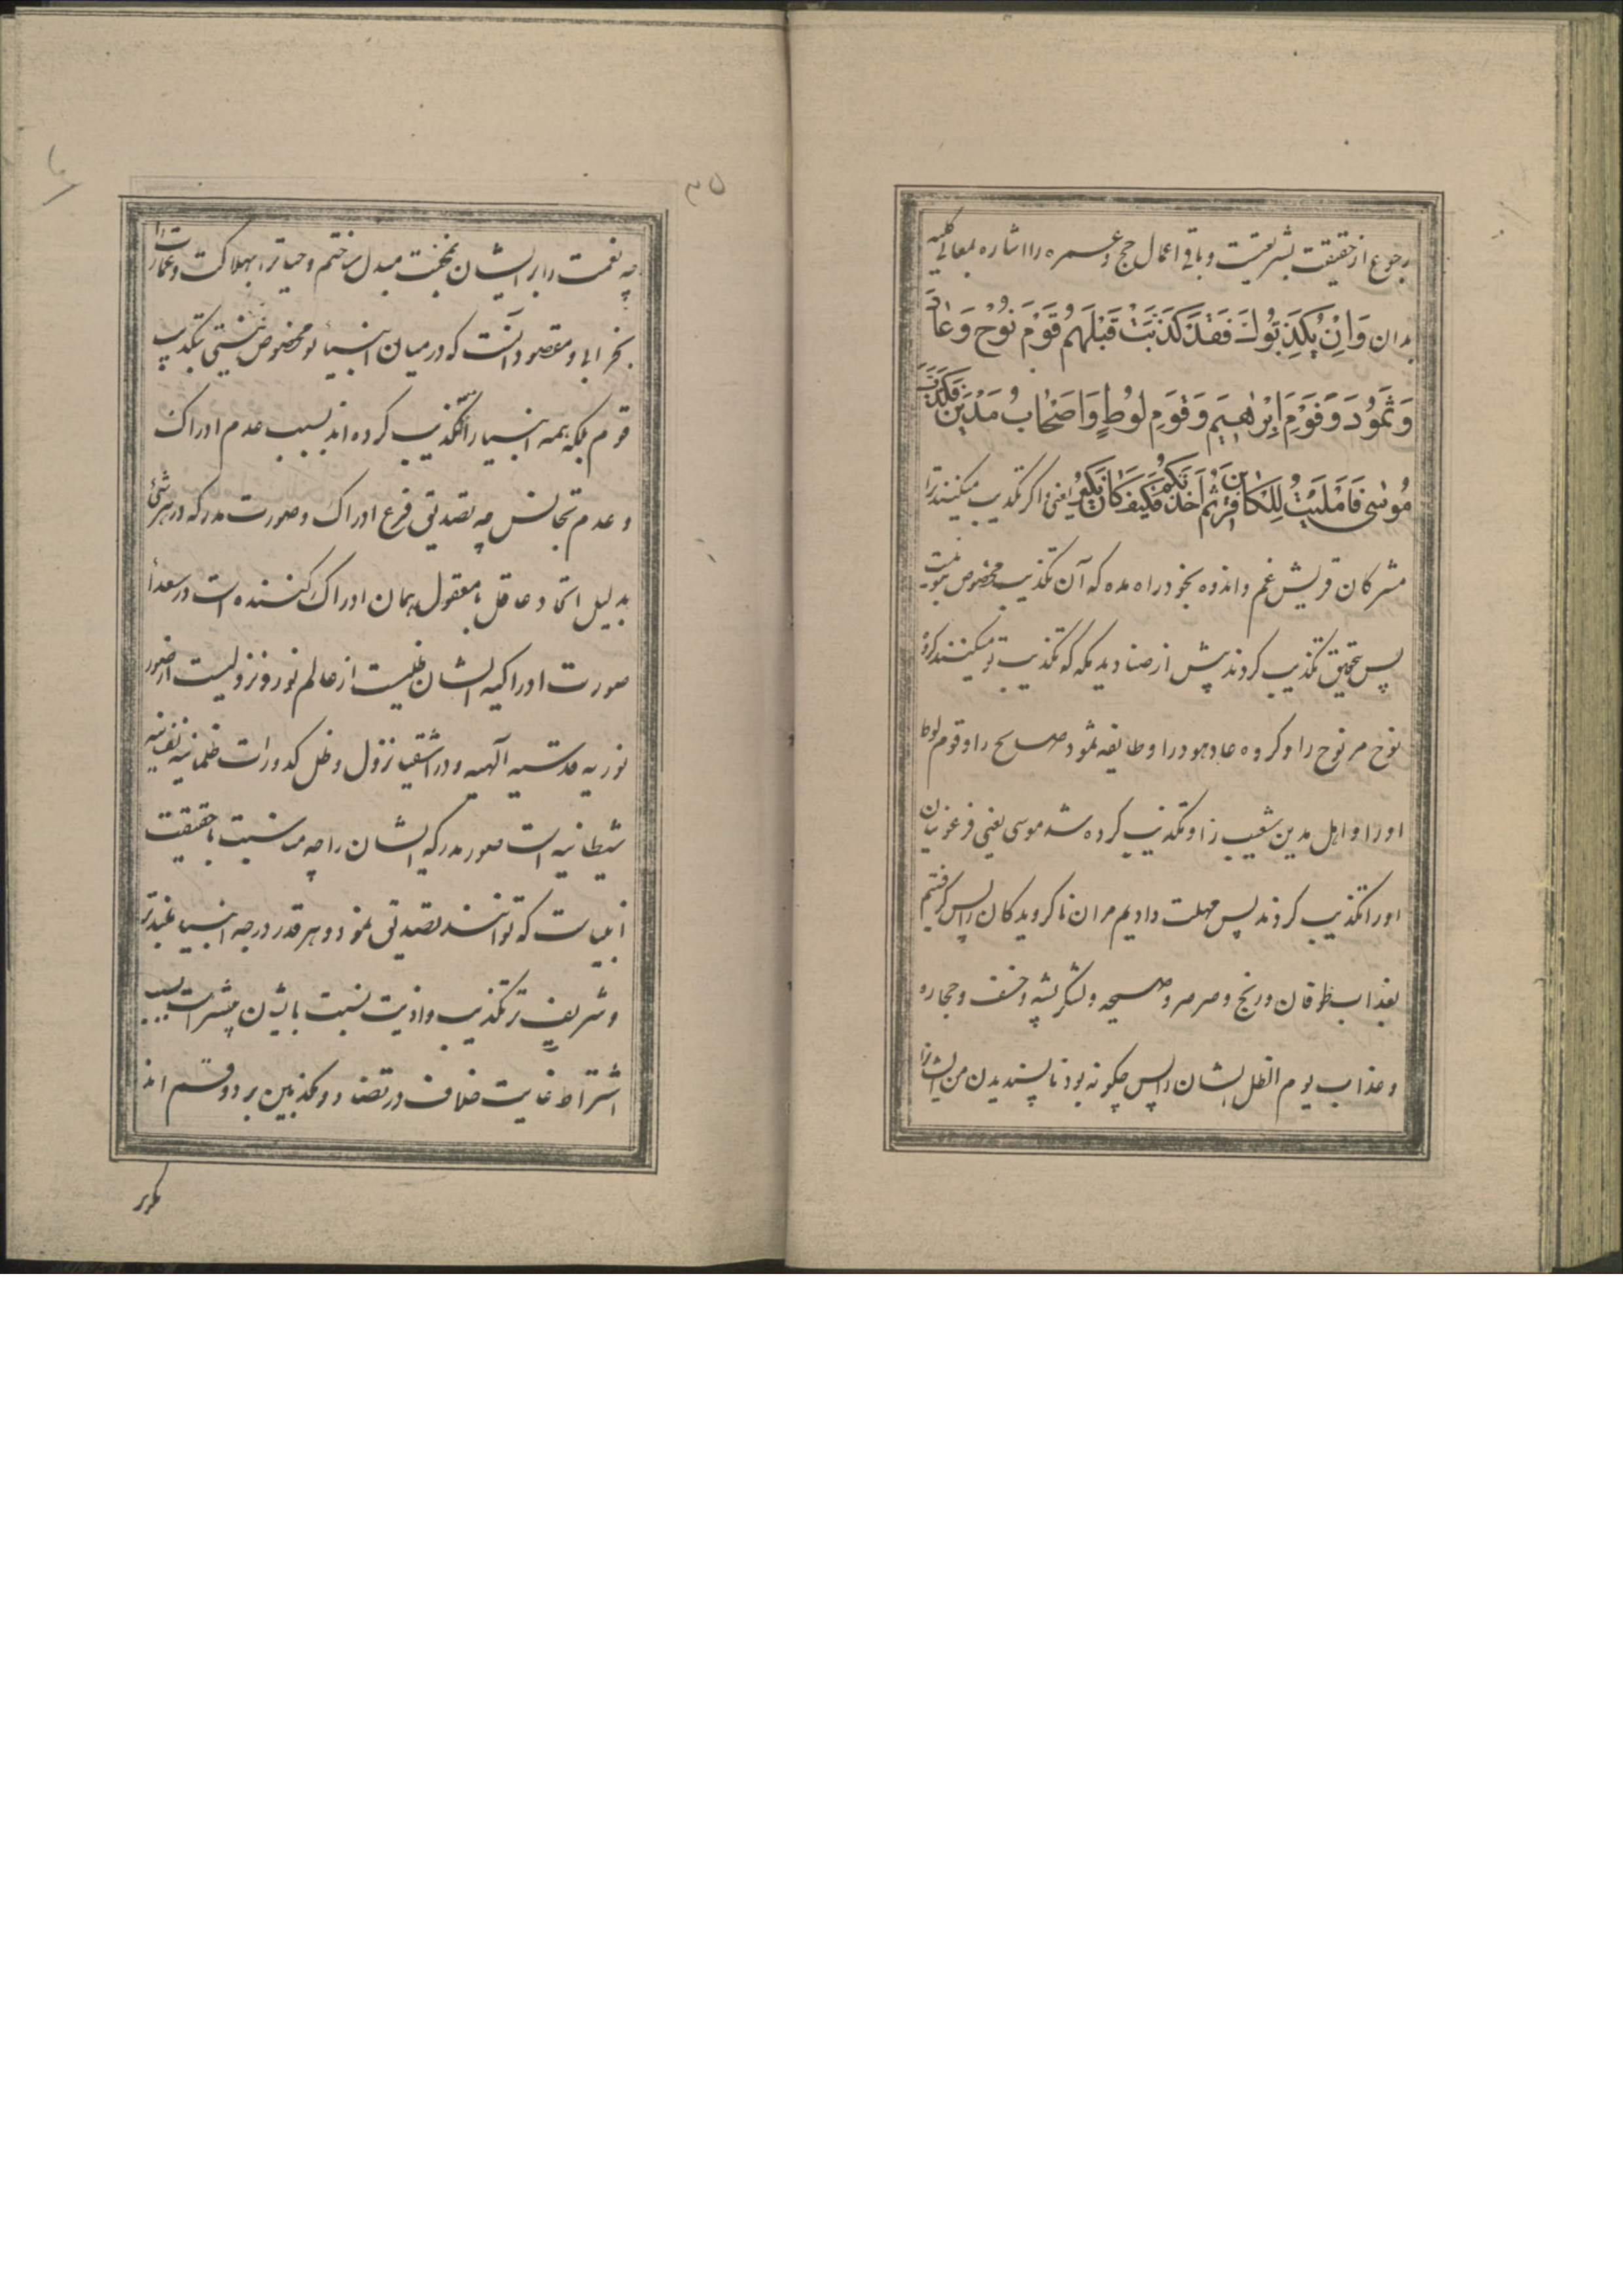 رجوع از حقیقت بشریعتست و باقی اعمال حج و عمره را اشاره بمعانی کلیه
بدان وَاِنْ یُکَذِّبُوكَ فَقَدْ کَذَّبَتْ قَبْلَهُمْ قَوْمُ نُوْحٍ وَعٰادٌ
وَثَمُودُ وَقَوْمُ اِبْرٰهِیمَ وَقَوْمُ لُوطٍ وَاَصْحٰابُ مَدْیَنَ وَکُذِّبَ
مُوسٰی فَاَمْلَیْتُ لِلْکٰافِرینَ ثُمَّ اَخَذْتُهُمْ فَکَیْفَ کٰانَ نَکیرِ یعنی و اگر تکذیب میکنند ترا
مشرکان قریش غم و اندوه بخود راه مده که آن تکذیب مخصوص بتو نیست
پس بتحقیق تکذیب کردند پیش از صنادید مکه که تکذیب تو میکنند گروه
نوح مر نوح را و گروه عاد هود را و طایفه ثمود صالح را و قوم لوط
او را و اهل مدین شعیب را و تکذیب کرده شد موسی یعنی فرعونیان
او را تکذیب کردند پس مهلت دادیم مران ناگرویدگان را پس گرفتیم
بعذاب طوفان و ریح و صرصر و صیحه و لشکر پشه و خسف و حجاره
و عذاب یوم الظل ایشان را پس چگونه بود ناپسندیدن من ایشانرا
۳۵
چه نعمت را بر ایشان بمحنت مبدل ساختم و حیاترا بهلاکت و عمارات را
بخرابها و مقصود آنست که در میان انبیا تو مخصوص نیستی بتکذیب
قوم بلکه همه انبیا را تکذیب کرده اند بسبب عدم ادراك
و عدم تجانس چه تصدیق فرع ادراك و صورت مدرکه در هر شئ
بدلیل اتحاد عاقل بمعقول همان ادراك کننده است در سعدا
صورت ادراکیه ایشان ظلیست از عالم نور و نزولیست از صور
نوریه قدسیه آلهیه و در اشقیا نزول و ظل کدورات ظلمانیه نفسانیه
شیطانیه است صور مدرکه ایشان را چه مناسبت با حقیقت
انبیاست که توانند تصدیق نمود و هر قدر درجه انبیا بلندتر
و شریف تر تکذیب و اذیت نسبت بایشان بیشتر است بسبب
اشتراط غایت خلاف در تضاد و مکذبین بر دو قسم اند